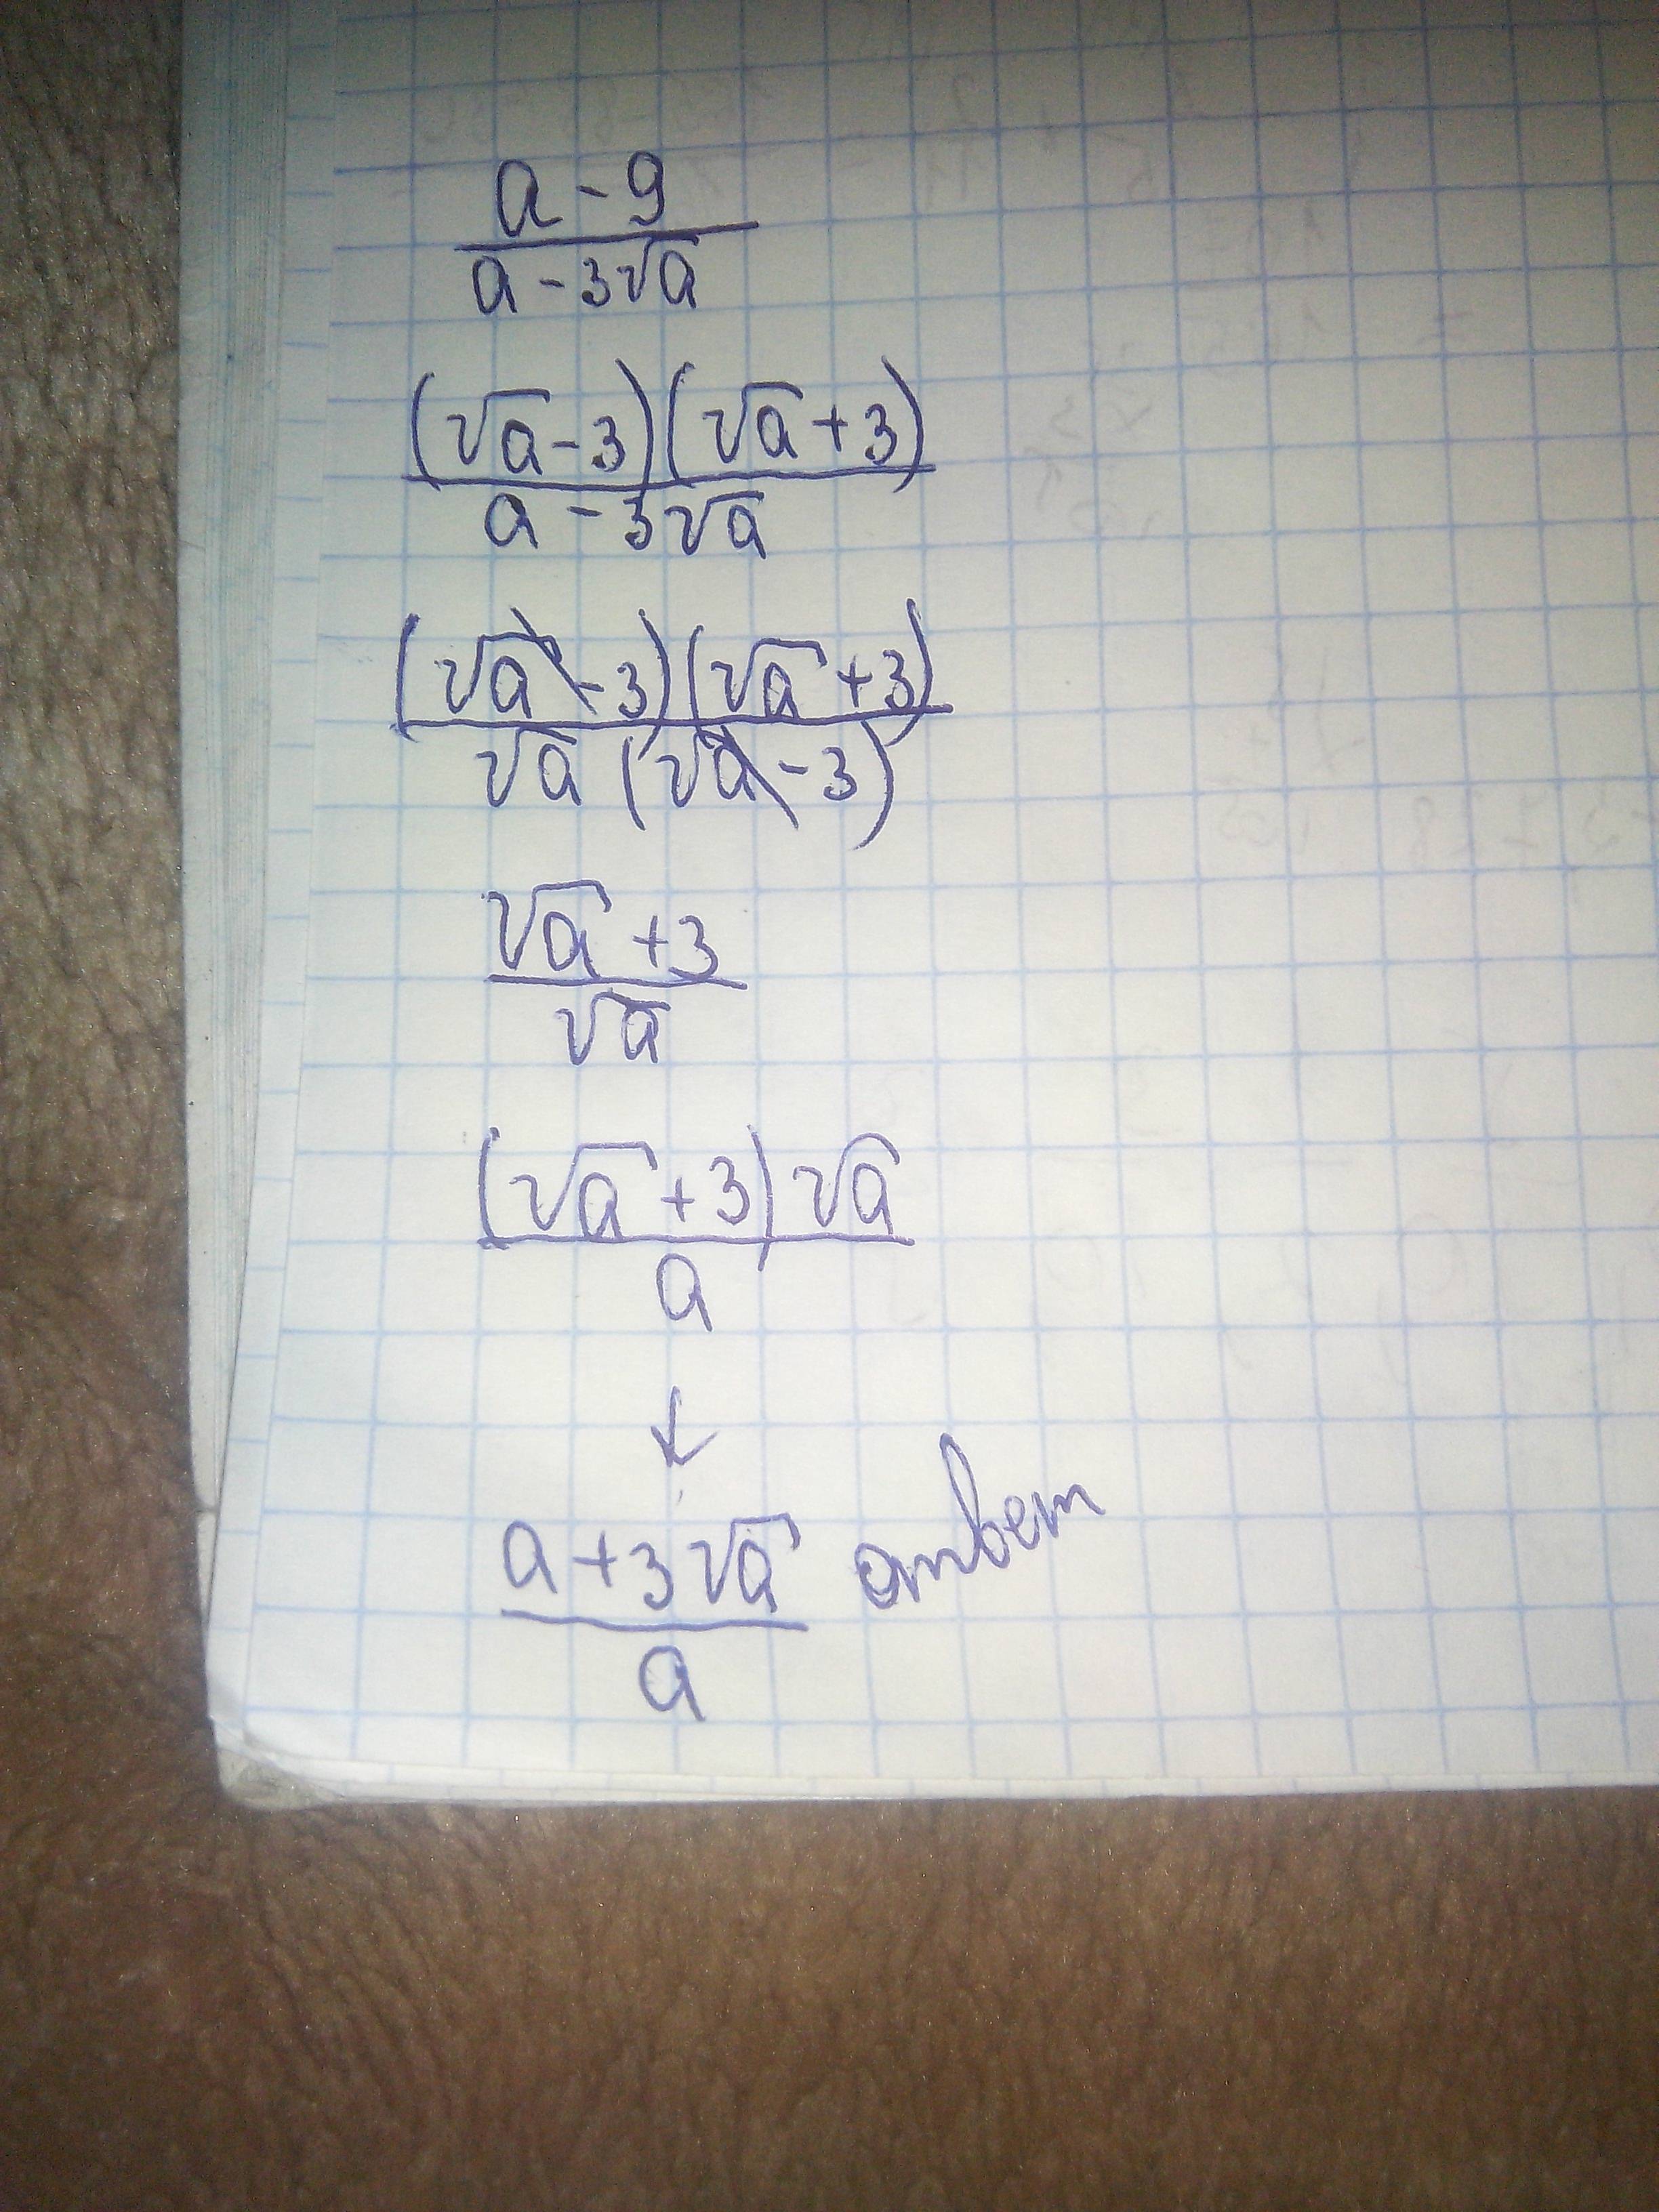 a - 9
a - 3√a
(√a - 3)(√a + 3)
a - 3√a
(√a - 3)(√a + 3)
√a (√a - 3)
√a + 3
√a
(√a + 3)√a
a
↓
a + 3√a ответ
a